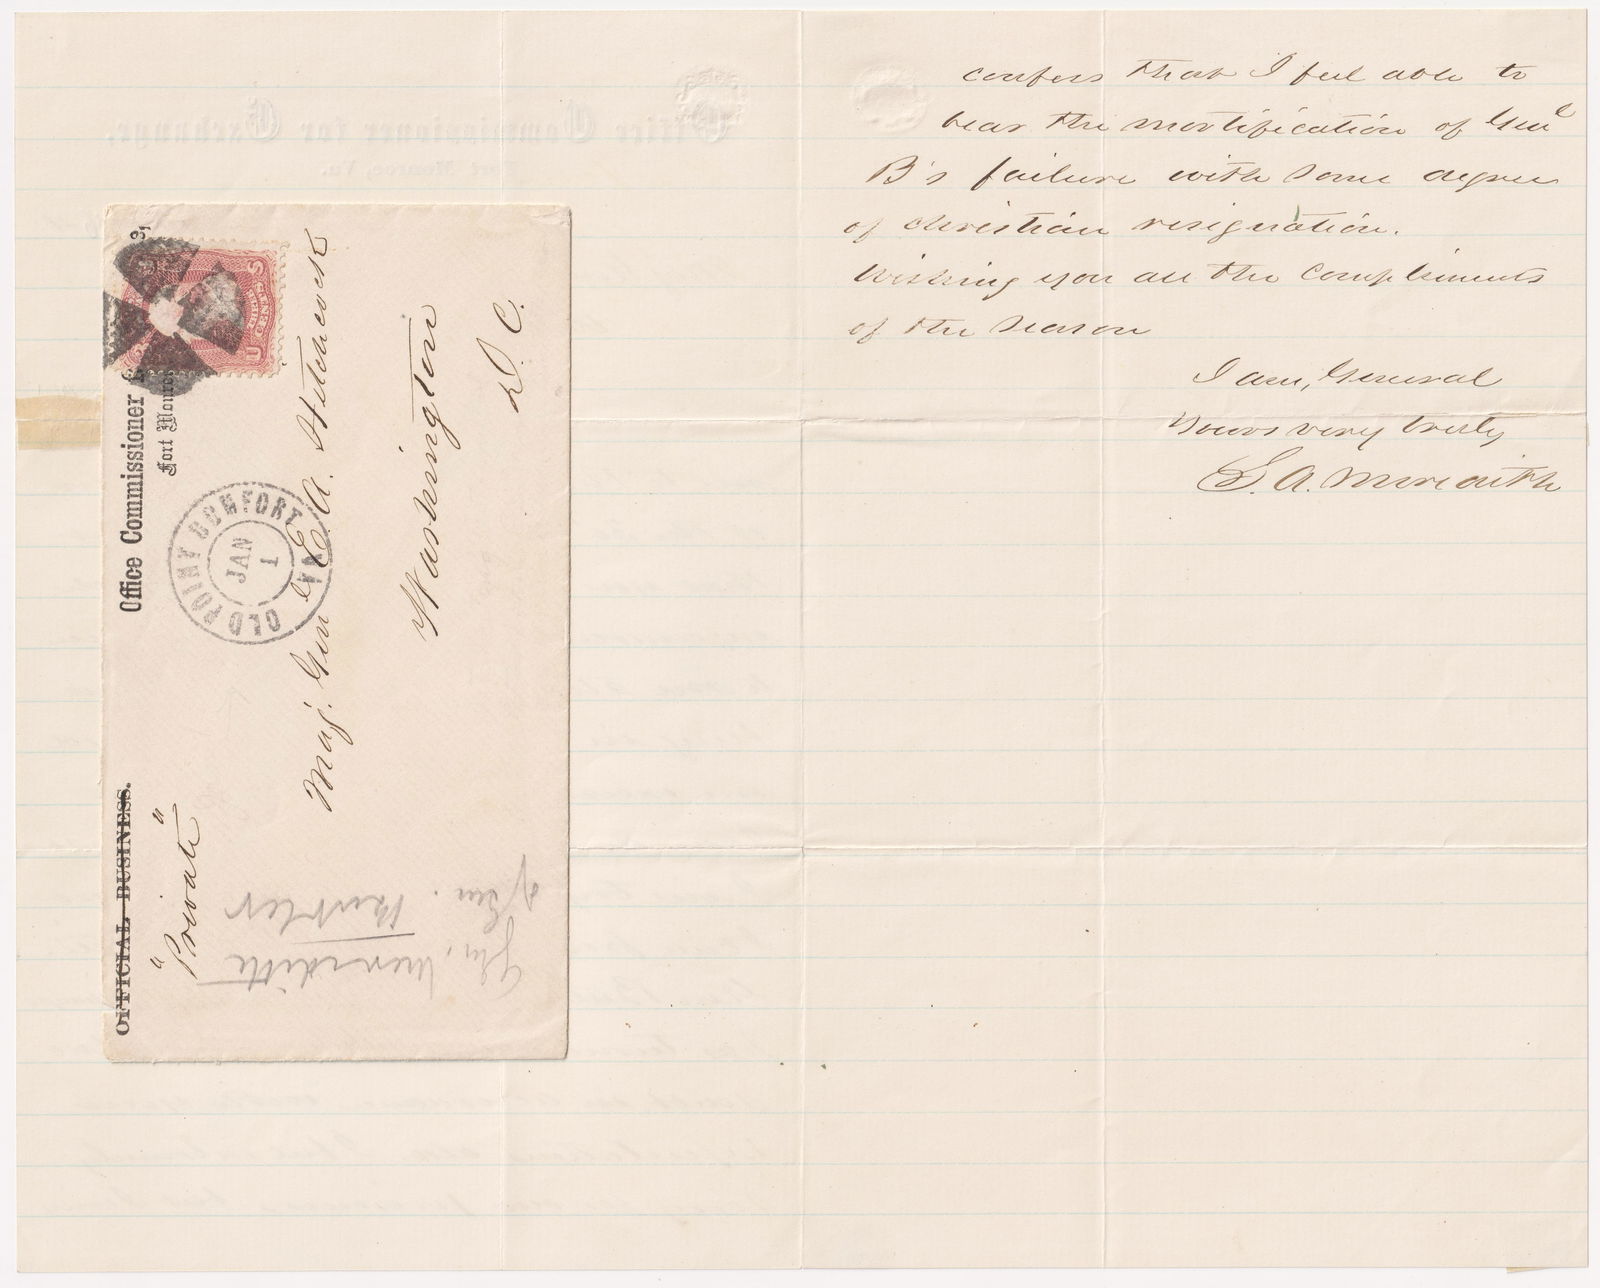 confess that I feel able to
bear the mortification of Genl
B's failure with some degree
of christian resignation.
Wishing you all the compliments
of the season
I am, General
Yours very truly
S. A. Meredith
Office Commissioner
Fort Monroe
OFFICIAL BUSINESS.
"Private"
Maj. Genl E. A. Hitchcock
Washington
D. C.
OLD POINT COMFORT VA.
JAN
1
U S
Gen. Meredith
of Gen. Butler
Office Commissioner for Exchange,
Fort Monroe, Va.